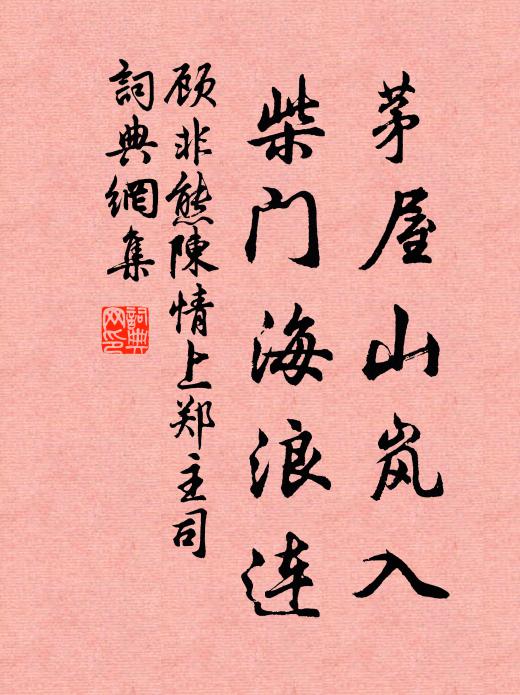 茅屋山岚入
柴门海浪连
顾非熊陳情上郑主司
詞典網集
詞典网印